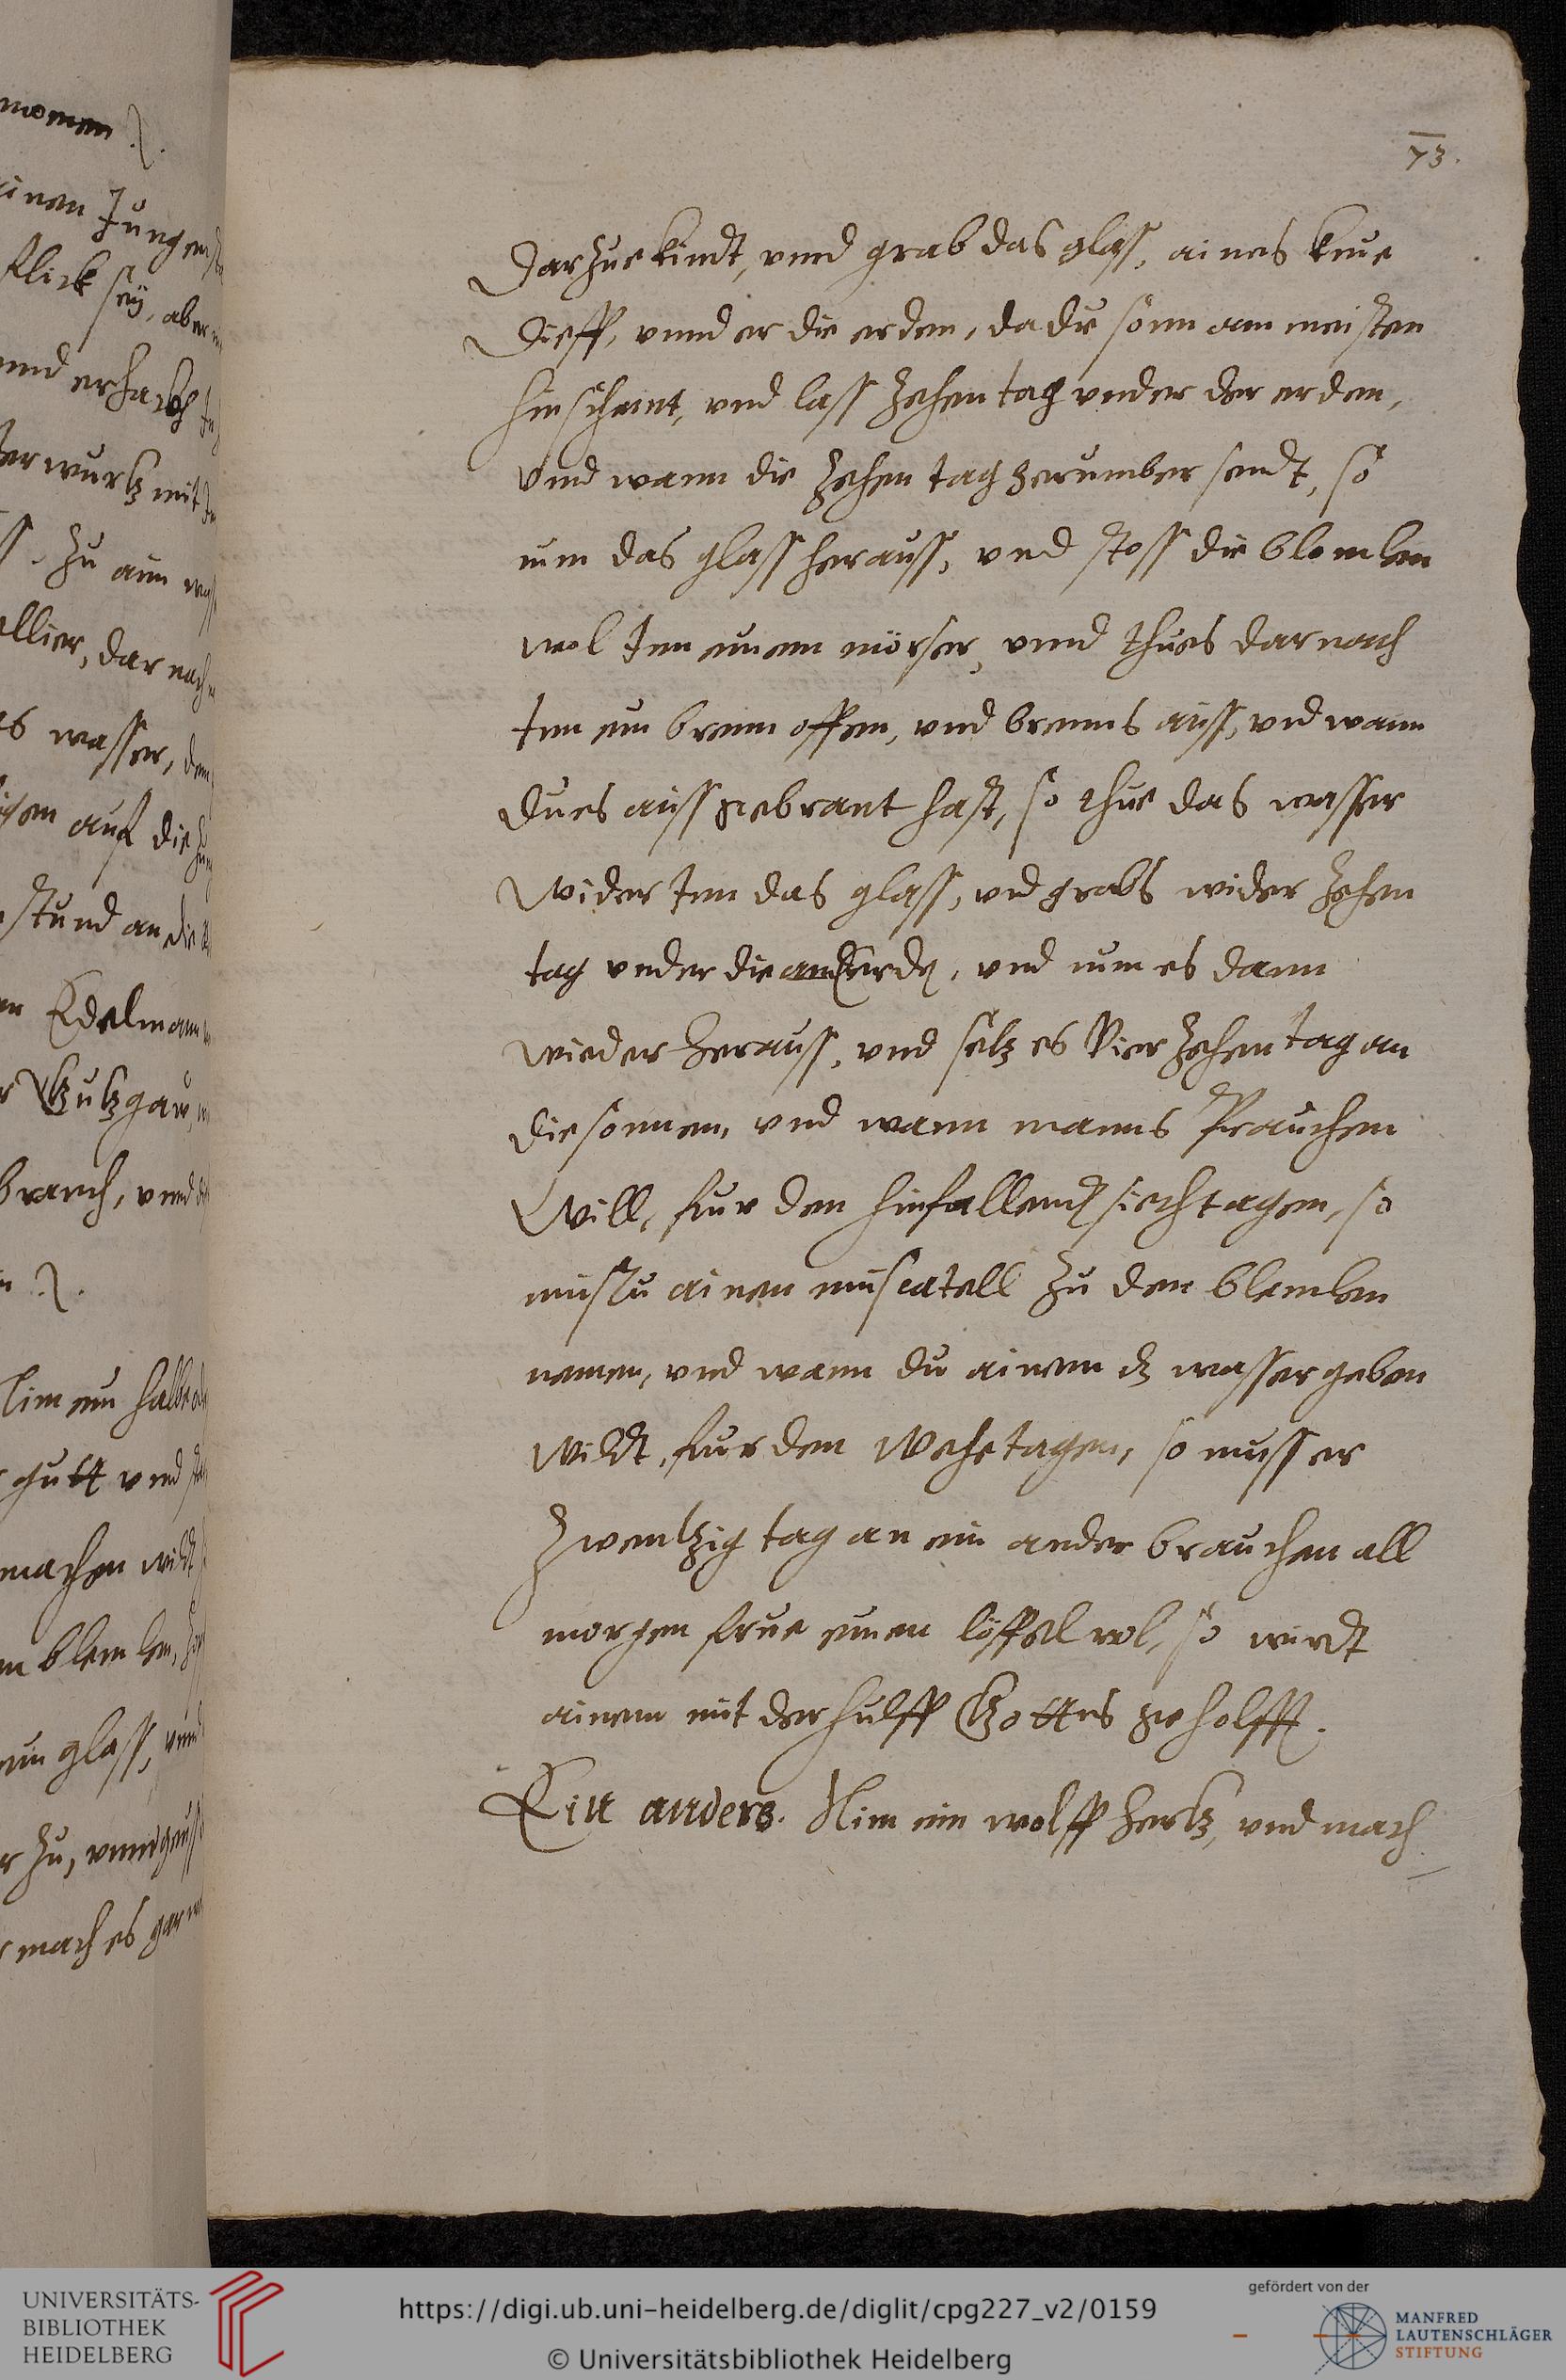 73.
darzue kindt, vnnd grab das glaß, aines knue
dieff, vnnder die erden, da die sonn am meisten
hin scheint, vnd lass zehen tag vnder der erden,
vnd wann die zehen tag herumber sendt, so
nim das glass herauss, vnd stoss die blemlen
wol Inn einem mörser, vnnd thues darnach
Inn ein brenn offen, vnd brenns auss, vnd wann
dues auss gebrant hast, so thue das wasser
wider Inn das glass, vnd grabs wider zehen
tag vnder die erden, vnd nim es dann
wieder herauss, vnd setz es vier zehen tag an
die sonnen, vnd wann manns Prauchen
will, fur den hinfallend siechtagen, so
mustu ainen muscatell zu den blemlen
nemen, vnd wann du ainem dz wasser geben
wildt, fur den wehetagen, so muss er
zwentzig tag an ein ander brauchen all
morgen frue einen löffel vol, so wirdt
ainem mit der hulff Gottes geholffen.
Ein anders. Nim ein wolff hertz, vnd mach
nomen
ainen Jungen
flick sey, aber
vnd erhackh
wurtz mit
zu ain
darnach
es wasser,
auf die
stund an die
Edelmann
brauch, vnnd
ein halb
gutt vnd
machen wildt
blemlen,
ein glass, vnnd
zu, vnnd
mach es gar
UNIVERSITÄTS-
BIBLIOTHEK
HEIDELBERG
https://digi.ub.uni-heidelberg.de/diglit/cpg227_v2/0159
© Universitätsbibliothek Heidelberg
gefördert von der
MANFRED
LAUTENSCHLÄGER
STIFTUNG